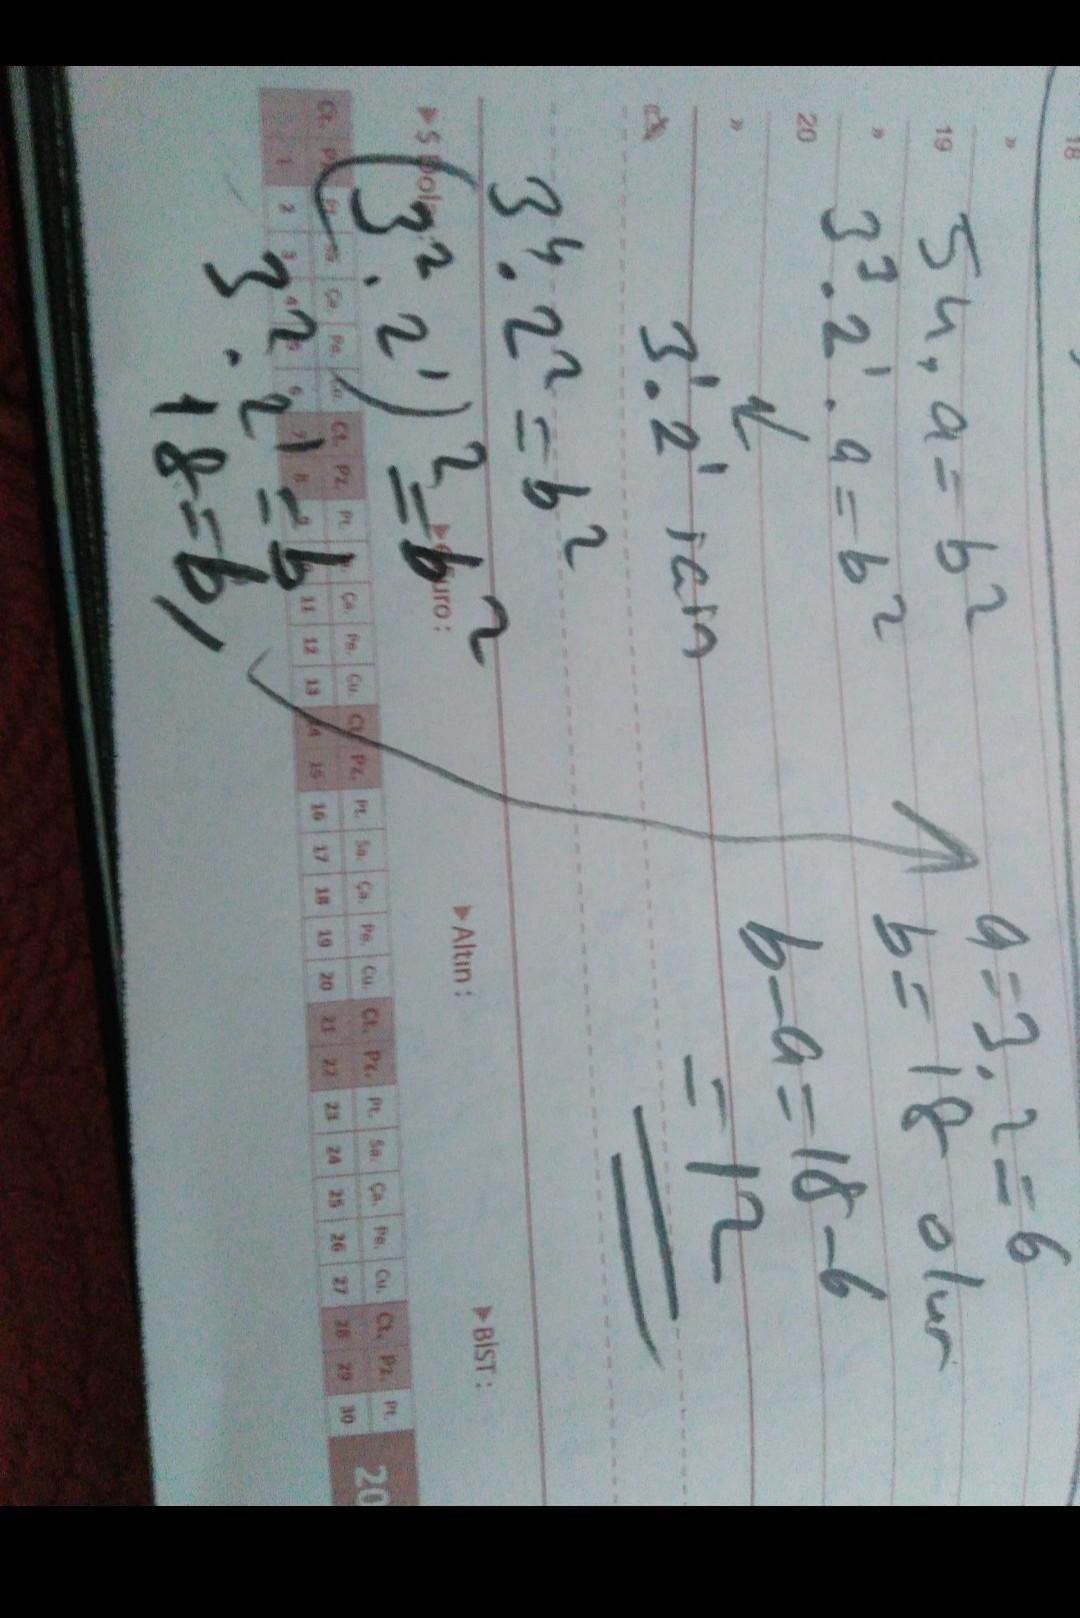 18
»
19
»
20
»
54.a=b²
3³.2¹.a=b²
3¹.2¹ için
3⁴.2²=b²
(3².2¹)²=b²
3².2¹=b
18=b
a=3.2=6
b=18 olur
b-a=18-6
=12
▶$ Dolar :
▶€ Euro :
▶Altın :
▶BİST :
Ct. Pz. Pt. Sa. Ça. Pe. Cu. Ct. Pz. Pt. Ça. Pe. Cu. Ct. Pz. Pt. Sa. Ça. Pe. Cu. Ct. Pz. Pt. Sa. Ça. Pe. Cu. Ct. Pz. Pt.
1 2 3 4 5 6 7 8 9 11 12 13 14 15 16 17 18 19 20 21 22 23 24 25 26 27 28 29 30
20